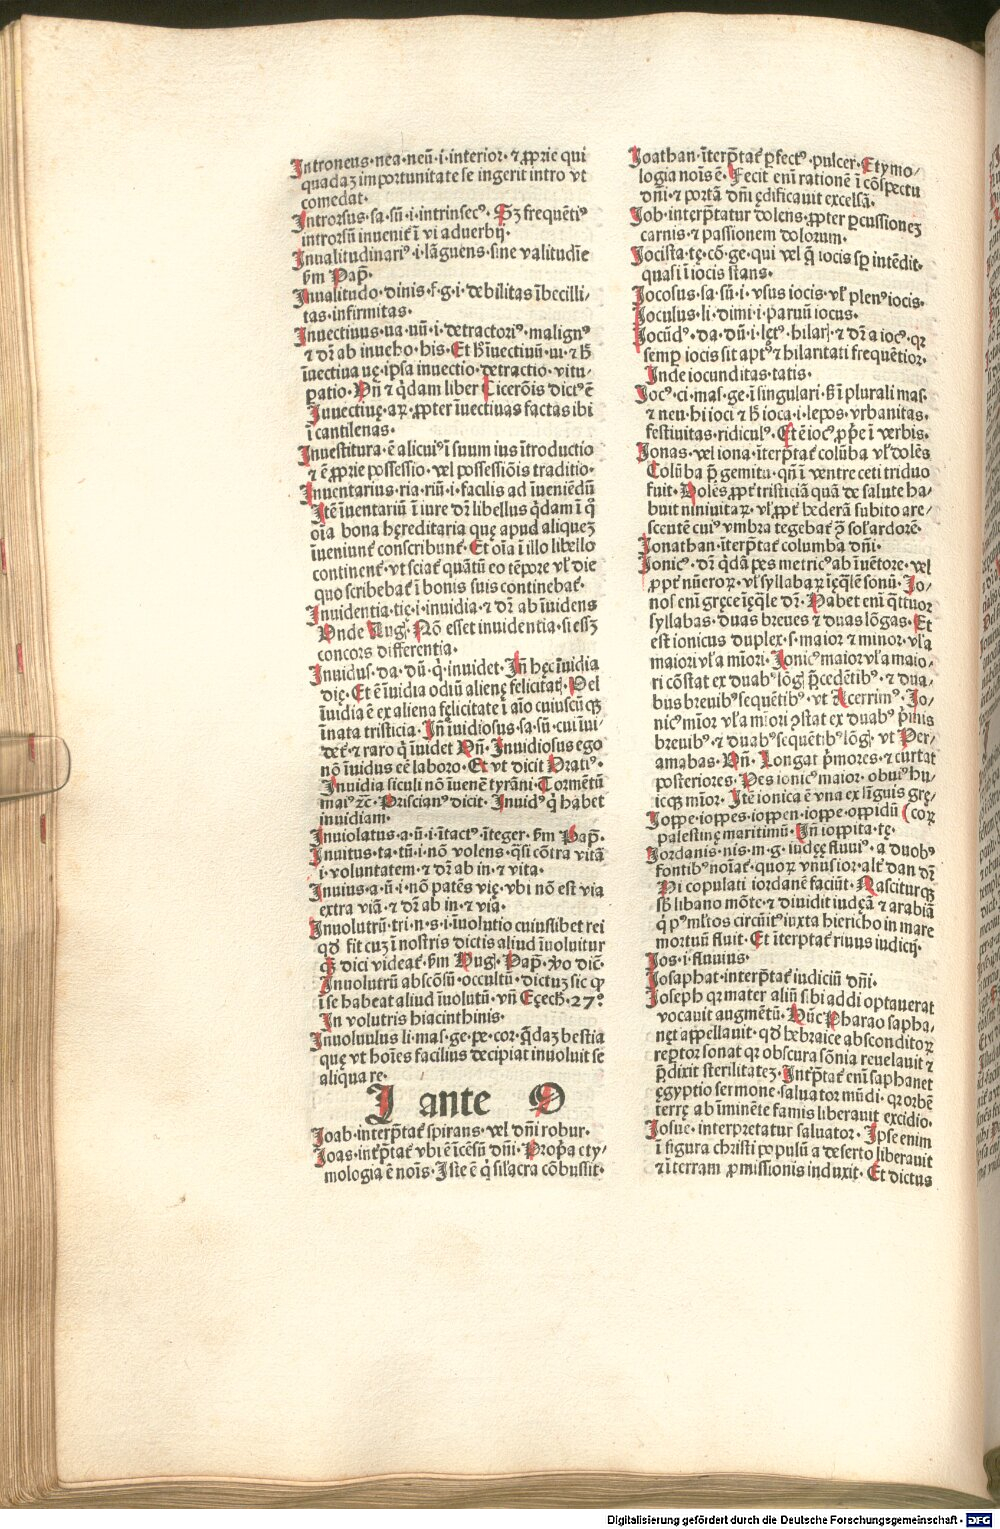 Introneus·nea·neū·i·interior·⁊ ꝓprie qui
quadaꝫ importunitate se ingerit intro vt
comedat·
Introrsus·sa·sū·i·intrinsecꝰ· Sꝫ frequētiꝰ
introrsū inuenit᷑ ī vi aduerbij·
Inualitudinariꝰ·i·lāguens·sine valitudīe
ẜm Pap̄·
Inualitudo·dinis·f·g·i·debilitas ībecilli/
tas·infirmitas·
Inuectiuus·ua·uū·i·detractoriꝰ·malignꝰ
⁊ dr̄ ab inueho·his·Et h̄ īuectiuū·ui·⁊ h̄
īuectiua uę·ipsa inuectio·detractio·vitu/
ꝑatio·Vn̄ ⁊ q̇dam liber Ciceroīs dictꝰ ē
Inuectiuę·aꝝ·ꝓpter īuectiuas factas ibi
ī cantilenas·
Inuestitura·ē alicuiꝰ ī suum ius ītroductio
⁊ ē ꝓprie possessio·vel possessiōis traditio·
Inuentarius·ria·riū·i·facilis ad īueniēdū
Itē īuentariū ī iure dr̄ libellus q̇dam ī qͦ
oīa bona hęreditaria quę apud aliqueꝫ
īueniunt᷑ conscribunt᷑·Et oīa ī illo libello
continent᷑·vt sciat᷑ quātū eo tēpore vl̓ die
quo scribebat᷑ ī bonis suis continebat᷑·
Inuidentia·tię·i·inuidia·⁊ dr̄ ab īuidens
Vnde Aug̓· Nō esset inuidentia·si essꝫ
concors differentia·
Inuidus·da·dū·q̇·inuidet·In̄ hęc īuidia
dię·Et ē īuidia odiū alienę felicitat᷑·Vel
īuidia ē ex aliena fęlicitate ī aīo cuiuscūqꝫ
īnata tristicia·In̄ īuidiosus·sa·sū·cui īui/
det᷑·⁊ raro q̇ īuidet Vn̄· Inuidiosus ego
nō īuidus eē laboro·Et vt dicit Oratiꝰ·
Inuidia siculi nō īuenē tyrāni·Tormētū
maiꝰ ⁊c̄·Priscianꝰ dicit·Inuidꝰ q̇ habet
inuidiam·
Inuiolatus·a·ū·i·ītactꝰ·īteger·ẜm Pap̄·
Inuitus·ta·tū·i·nō volens·q̄si cōtra vitā
i·voluntatem·⁊ dr̄ ab in·⁊ vita·
Inuius·a·ū·i·nō patēs vię·vbi nō est via
extra viā·⁊ dr̄ ab in·⁊ via·
Inuolutrū·tri·n·s·i·īuolutio cuiuslibet rei
qḋ fit cuꝫ ī nostris dictis aliud īuoluitur
q̄ꝫ dici videat᷑·ẜm Hug̓·Pap̄·ꝟo dic̄·
Inuolutrū abscōsū·occultū·dictuꝫ sic ꝙ
ī se habeat aliud īuolutū·vn̄ Eęech·27°
In volutris hiacinthinis·
Inuoluulus li·mas·ge·pe·cor·q̄daꝫ bestia
quę vt hoīes facilius decipiat inuoluit se
aliqua re·
I ante O
Joab·interp̄tat᷑ spirans·vel dn̄i robur·
Joas·int᷑p̄tat᷑ vbi ē īcēsū dn̄i·Prop̄a ety/
mologia ē noīs·Iste ē q̇ sīlacra cōbussit·
Joathan·īterp̄tat᷑ ꝑfectꝰ·pulcer·Etymo/
logia noīs ē· Fecit enī rationē ī cōspectu
dn̄i·⁊ portā dn̄i ędificauit excelsā·
Job·interp̄tatur dolens·ꝓpter ꝑcussioneꝫ
carnis·⁊ passionem dolorum·
Jocista·tę·cō·ge·qui vel q̄ iocis sꝑ intēdit·
quasi ī iocis stans·
Jocosus·sa·sū·i·vsus iocis·vl̓ plenꝰ iocis·
Joculus·li·dimi·i·paruū iocus·
Jocūdꝰ·da·dū·i·lętꝰ·hilaris·⁊ dr̄ a iocꝰ·qꝛ
semꝑ iocis sit aptꝰ ⁊ hilaritati frequētior·
Inde iocunditas·tatis·
Jocꝰ·ci·mas·ge·ī singulari·s̄ ī plurali mas·
⁊ neu·hi ioci ⁊ h̄ ioca·i·lepos·vrbanitas·
festiuitas·ridiculꝰ·Et ē iocꝰ ꝓp̄e ī verbis·
Jonas·vel iona·īterp̄tat᷑ colūba vl̓ dolēs
Colūba p̄ gemitu·qn̄ ī ventre ceti triduo
fuit·Dolēs ꝓpt᷑ tristiciā quā de salute ha/
buit niniuitaꝝ·vl̓ ꝓpt᷑ hederā subito are/
scentē cuiꝰ vmbra tegebat᷑ ꝯ̄ sol̓ ardorē·
Jonathan·īterp̄tat᷑ columba dn̄i·
Jonicꝰ·dr̄ q̇dā pes metricꝰ ab īuētore·vel
ꝓpt᷑ nūeroꝝ·vl̓ syllabaꝝ īęq̄lē sonū· Jo/
nos enī gręce īęq̄le dr̄·Habet enī q̄ttuor
syllabas·duas breues ⁊ duas lōgas·Et
est ionicus duplex·s·maior ⁊ minor·vl̓ a
maiori vl̓ a mīori·Jonicꝰ maior vl̓ a maio/
ri cōstat ex duabꝰ lōg̓ p̄cedētibꝰ·⁊ dua/
bus breuibꝰ sequētibꝰ·vt Acerrimꝰ· Jo/
nicꝰ mīor vl̓ a mīori ꝯstat ex duabꝰ p̄mis
breuibꝰ·⁊ duabꝰ sequētibꝰ lōg̓·vt Per/
amabas·Vn̄·Longat p̄mores·⁊ curtat
posteriores·Pes ionicꝰ maior·obuiꝰ hu/
icqꝫ mīor·Itē ionica ē vna ex līguis gre/
Joppe·ioppes·ioppen·ioppe·oppidū (coꝝ
palestinę maritimū·In̄ ioppita·tę·
Jordanis·nis·m·g·iudęę fluuiꝰ·a duobꝰ
fontibꝰ noīat᷑·quoꝝ vnus ior·alt᷑ dan dr̄
Hi copulati iordanē faciūt·Nasciturqꝫ
sb̄ libano mōte·⁊ diuidit iudęā ⁊ arabiā
q̇ pꝰ ml̓tos circūitꝰ iuxta hiericho in mare
mortuū fluit·Et īterp̄tat᷑ riuus iudicij·
Jos·i·fluuius·
Josaphat·interp̄tat᷑ iudiciū dn̄i·
Joseph qꝛ mater aliū sibi addi optauerat
vocauit augmētū·Hūc Pharao sapha/
net appellauit·qḋ hebraice absconditoꝝ
reꝑtor sonat qꝛ obscura sōnia reuelauit ⁊
p̄dixit sterilitateꝫ·Int᷑p̄tat᷑ enī saphanet
ęgyptio sermone·saluator mūdi·qꝛ orbē
terrę ab īminēte famis liberauit excidio·
Josue·interpretatur saluator·Ipse enim
ī figura christi populū a deserto liberauit
⁊ ī terram ꝓmissionis induxit·Et dictus
Digitalisierung gefördert durch die Deutsche Forschungsgemeinschaft - DFG